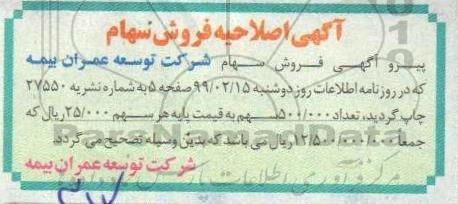 آگهی اصلاحیه فروش سهام
پیرو آگهی فروش سهام شرکت توسعه عمران بیمه
که در روزنامه اطلاعات روز دوشنبه ۹۹/۰۲/۱۵ صفحه ۵ به شماره نشریه ۲۷۵۵۰
چاپ گردید، تعداد ۵۰۰/۰۰۰ سهم به قیمت پایه هر سهم ۲۵/۰۰۰ ریال که
جمعا ۱۲/۵۰۰/۰۰۰/۰۰۰ ریال می باشد که بدین وسیله تصحیح می گردد.
شرکت توسعه عمران بیمه
ParsNamadData